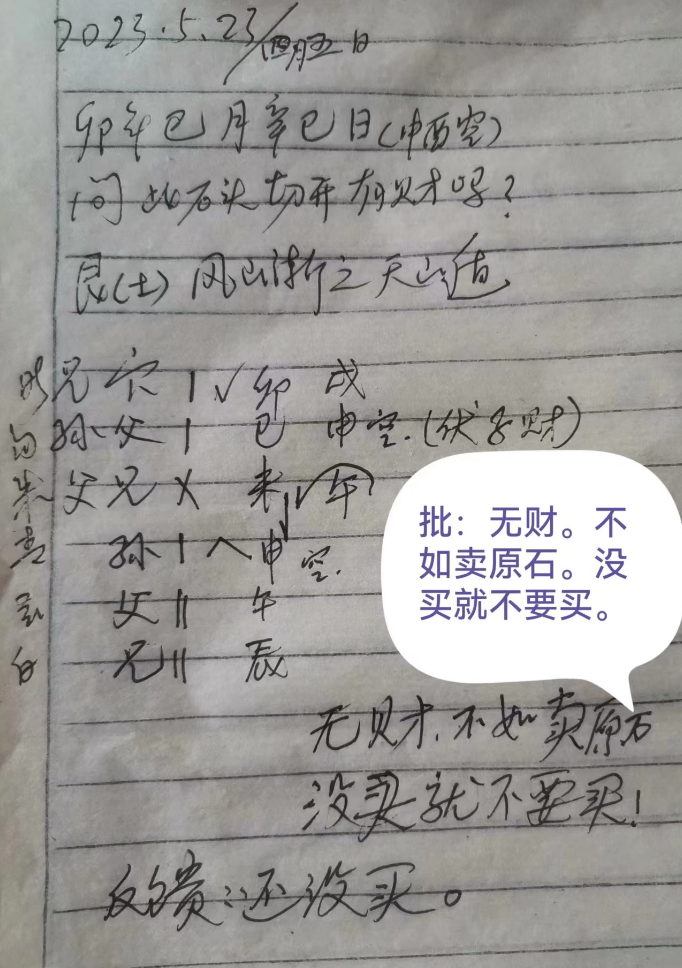 2023.5.23/四月五日
卯年巳月辛巳日(申酉空)
问此石头切开有财吗?
艮(土) 风山渐之天山遁
兄 官 | √ 卯 戌
勾 孙 父 | 巳 申空.(伏子财)
朱 父 兄 X 未 √ 午
青 孙 | 申 空.
玄 父 || 午
白 兄 || 辰
批：无财。不
如卖原石。没
买就不要买。
无财.不如卖原石
没买就不要买!
反馈:还没买。